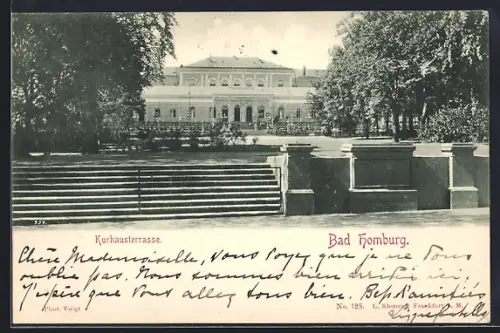 938.
Kurhausterrasse.
Bad Homburg.
Chère Mademoiselle, vous voyez que je ne vous
oublie pas. Nous sommes bien arrivées ici,
J'espère que vous allez tous bien. Amitiés
Phot. Voigt
No. 125. L. Klement, Frankfurt a. M.